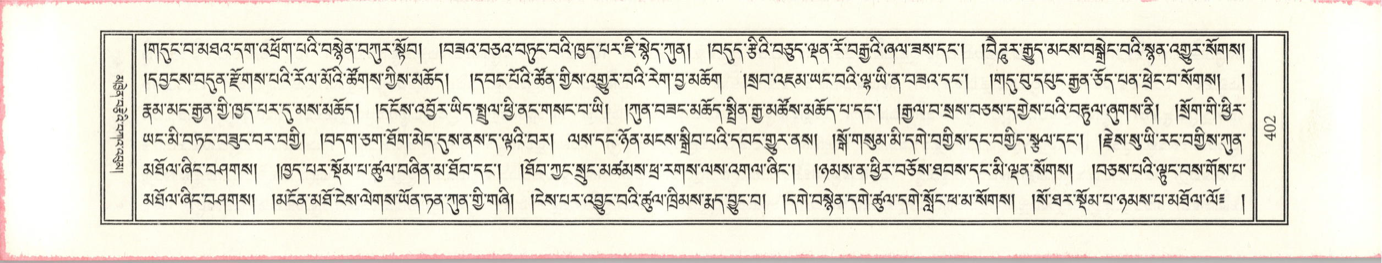 །གདུང་བ་མཐའ་དག་འཕྲོག་པའི་བསྙེན་བཀུར་སྟོབ། །བཟའ་བཅའ་བཏུང་བའི་ཁྱད་པར་ཇི་སྙེད་ཀུན། །བདུད་རྩིའི་བཅུད་ལྡན་རོ་བརྒྱའི་ཞལ་ཟས་དང་། །བཻཌཱུར་རྒྱུད་མངས་བསྒྲེང་བའི་སྙན་འགྱུར་སོགས།
།དབྱངས་བདུན་རྫོགས་པའི་རོལ་མོའི་ཚོགས་ཀྱིས་མཆོད། །དབང་པོའི་ཚོན་གྱིས་འགྱུར་བའི་རེག་བྱ་མཆོག །སྲབ་འཇམ་ཡང་བའི་ལྷ་ཡི་ན་བཟའ་དང་། །གདུ་བུ་དཔུང་རྒྱན་ཅོད་པན་ཕྲེང་བ་སོགས། །
རྣམ་མང་རྒྱན་གྱི་ཁྱད་པར་དུ་མས་མཆོད། །དངོས་འབྱོར་ཡིད་སྤྲུལ་ཕྱི་ནང་གསང་བ་ཡི། །ཀུན་བཟང་མཆོད་སྤྲིན་རྒྱ་མཚོས་མཆོད་པ་དང་། །རྒྱལ་བ་སྲས་བཅས་དགྱེས་པའི་བརྟུལ་ཞུགས་ནི། །སྲོག་གི་ཕྱིར་
ཡང་མི་བཏང་བཟུང་བར་བགྱི། །བདག་ཅག་ཐོག་མེད་དུས་ནས་ད་ལྟའི་བར། ལས་དང་ཉོན་མངས་སྒྲིབ་པའི་དབང་གྱུར་ནས། །སྒོ་གསུམ་མི་དགེ་བགྱིས་དང་བགྱིད་སྩལ་དང་། །རྗེས་སུ་ཡི་རང་བགྱིས་ཀུན་
མཐོལ་ཞིང་བཤགས། །ཁྱད་པར་སྡོམ་པ་ཚུལ་བཞིན་མ་ཐོབ་དང་། །ཐོབ་ཀྱང་སྲུང་མཚམས་ཕྲ་རགས་ལས་འགལ་ཞིང་། །ཉམས་ན་ཕྱིར་བཅོས་ཐབས་དང་མི་ལྡན་སོགས། །བཅས་པའི་ལྟུང་བས་གོས་པ་
མཐོལ་ཞིང་བཤགས། །མངོན་མཐོ་ངེས་ལེགས་ཡོན་ཏན་ཀུན་གྱི་གཞི། །ངེས་པར་འབྱུང་བའི་ཚུལ་ཁྲིམས་རྨད་བྱུང་བ། །དགེ་བསྙེན་དགེ་ཚུལ་དགེ་སློང་ཕ་མ་སོགས། །སོ་ཐར་སྡོམ་པ་ཉམས་པ་མཐོལ་ལོ༔ །
402